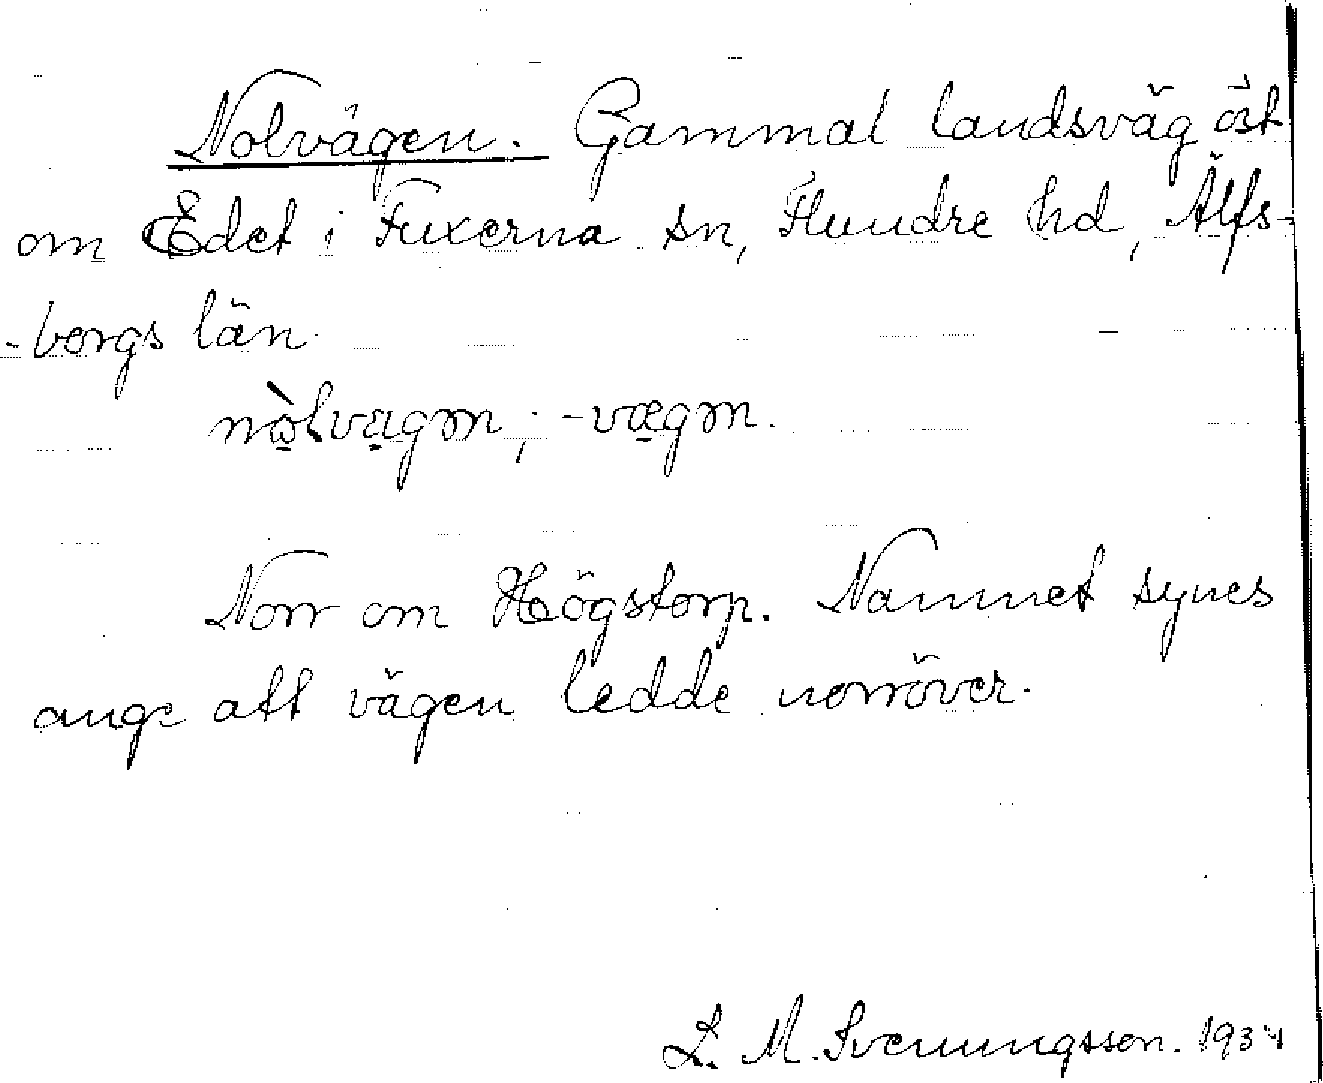 Nolvägen. Gammal landsväg öst
om Edet i Fuxerna sn, Flundre hd, Älfs-
-borgs län.
nòlvægən, -vægən.
Norr om Högstorp. Namnet synes
ange att vägen ledde norröver.
L. M. Svenungsson. 1934